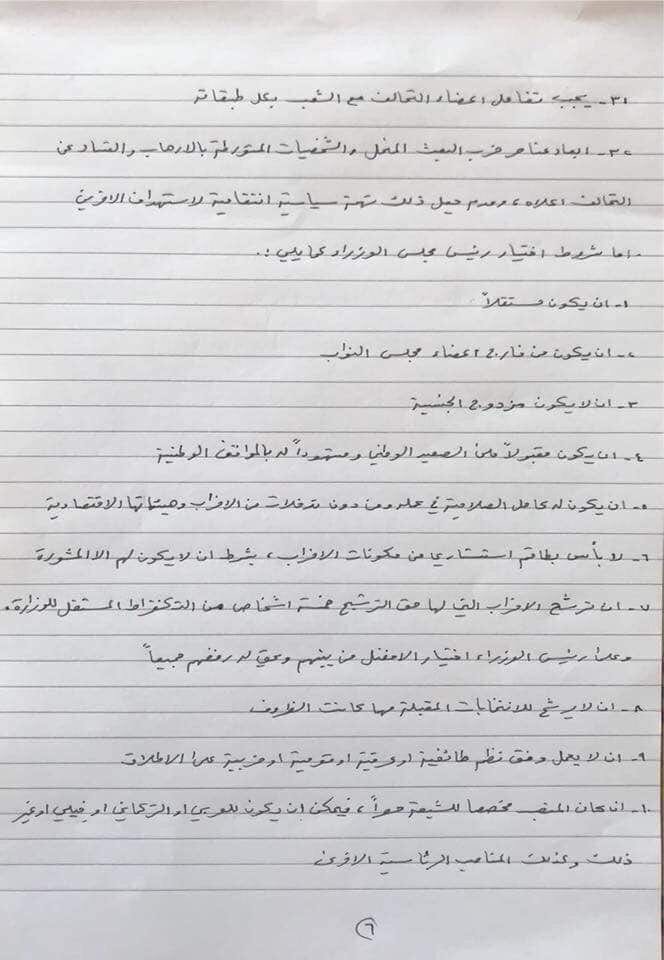 ٣١- يجب تفاعل اعضاء التحالف مع الشعب بكل طبقاته
٣٢- ابعاد عناصر حزب البعث المنحل والشخصيات المتورطة بالارهاب والفساد عن
التحالف اعلاه، وعدم جعل ذلك تهمة سياسية انتقامية لاستهداف الاخرين
. اما شروط اختيار رئيس مجلس الوزراء كمايلي :.
١- ان يكون مستقلاً
٢- ان يكون من خارج اعضاء مجلس النواب
٣- ان لا يكون مزدوج الجنسية
٤- ان يكون مقبولاً على الصعيد الوطني ومشهوداً له بالمواقف الوطنية
٥- ان يكون له كامل الصلاحية في عمله ومن دون تدخلات من الاحزاب وهيئاتها الاقتصادية
٦- لا بأس بطاقم استشاري من مكونات الاحزاب، بشرط ان لا يكون لهم الا المشورة
٧- ان ترشح الاحزاب التي لها حق الترشيح خمسة اشخاص من التكنقراط المستقل للوزارة.
وعلى رئيس الوزراء اختيار الافضل من بينهم ويحق له رفضهم جميعاً
٨- ان لا يرشح للانتخابات المقبلة مهما كانت الظروف
٩- ان لا يعمل وفق نظم طائفية او عرقية او قومية او حزبية على الاطلاق
١٠- ان كان المنصب مخصصا للشيعة حصراً، فيمكن ان يكون للعربي او التركماني او فيلي او غير
ذلك وكذلك المناصب الرئاسية الاخرى
٦